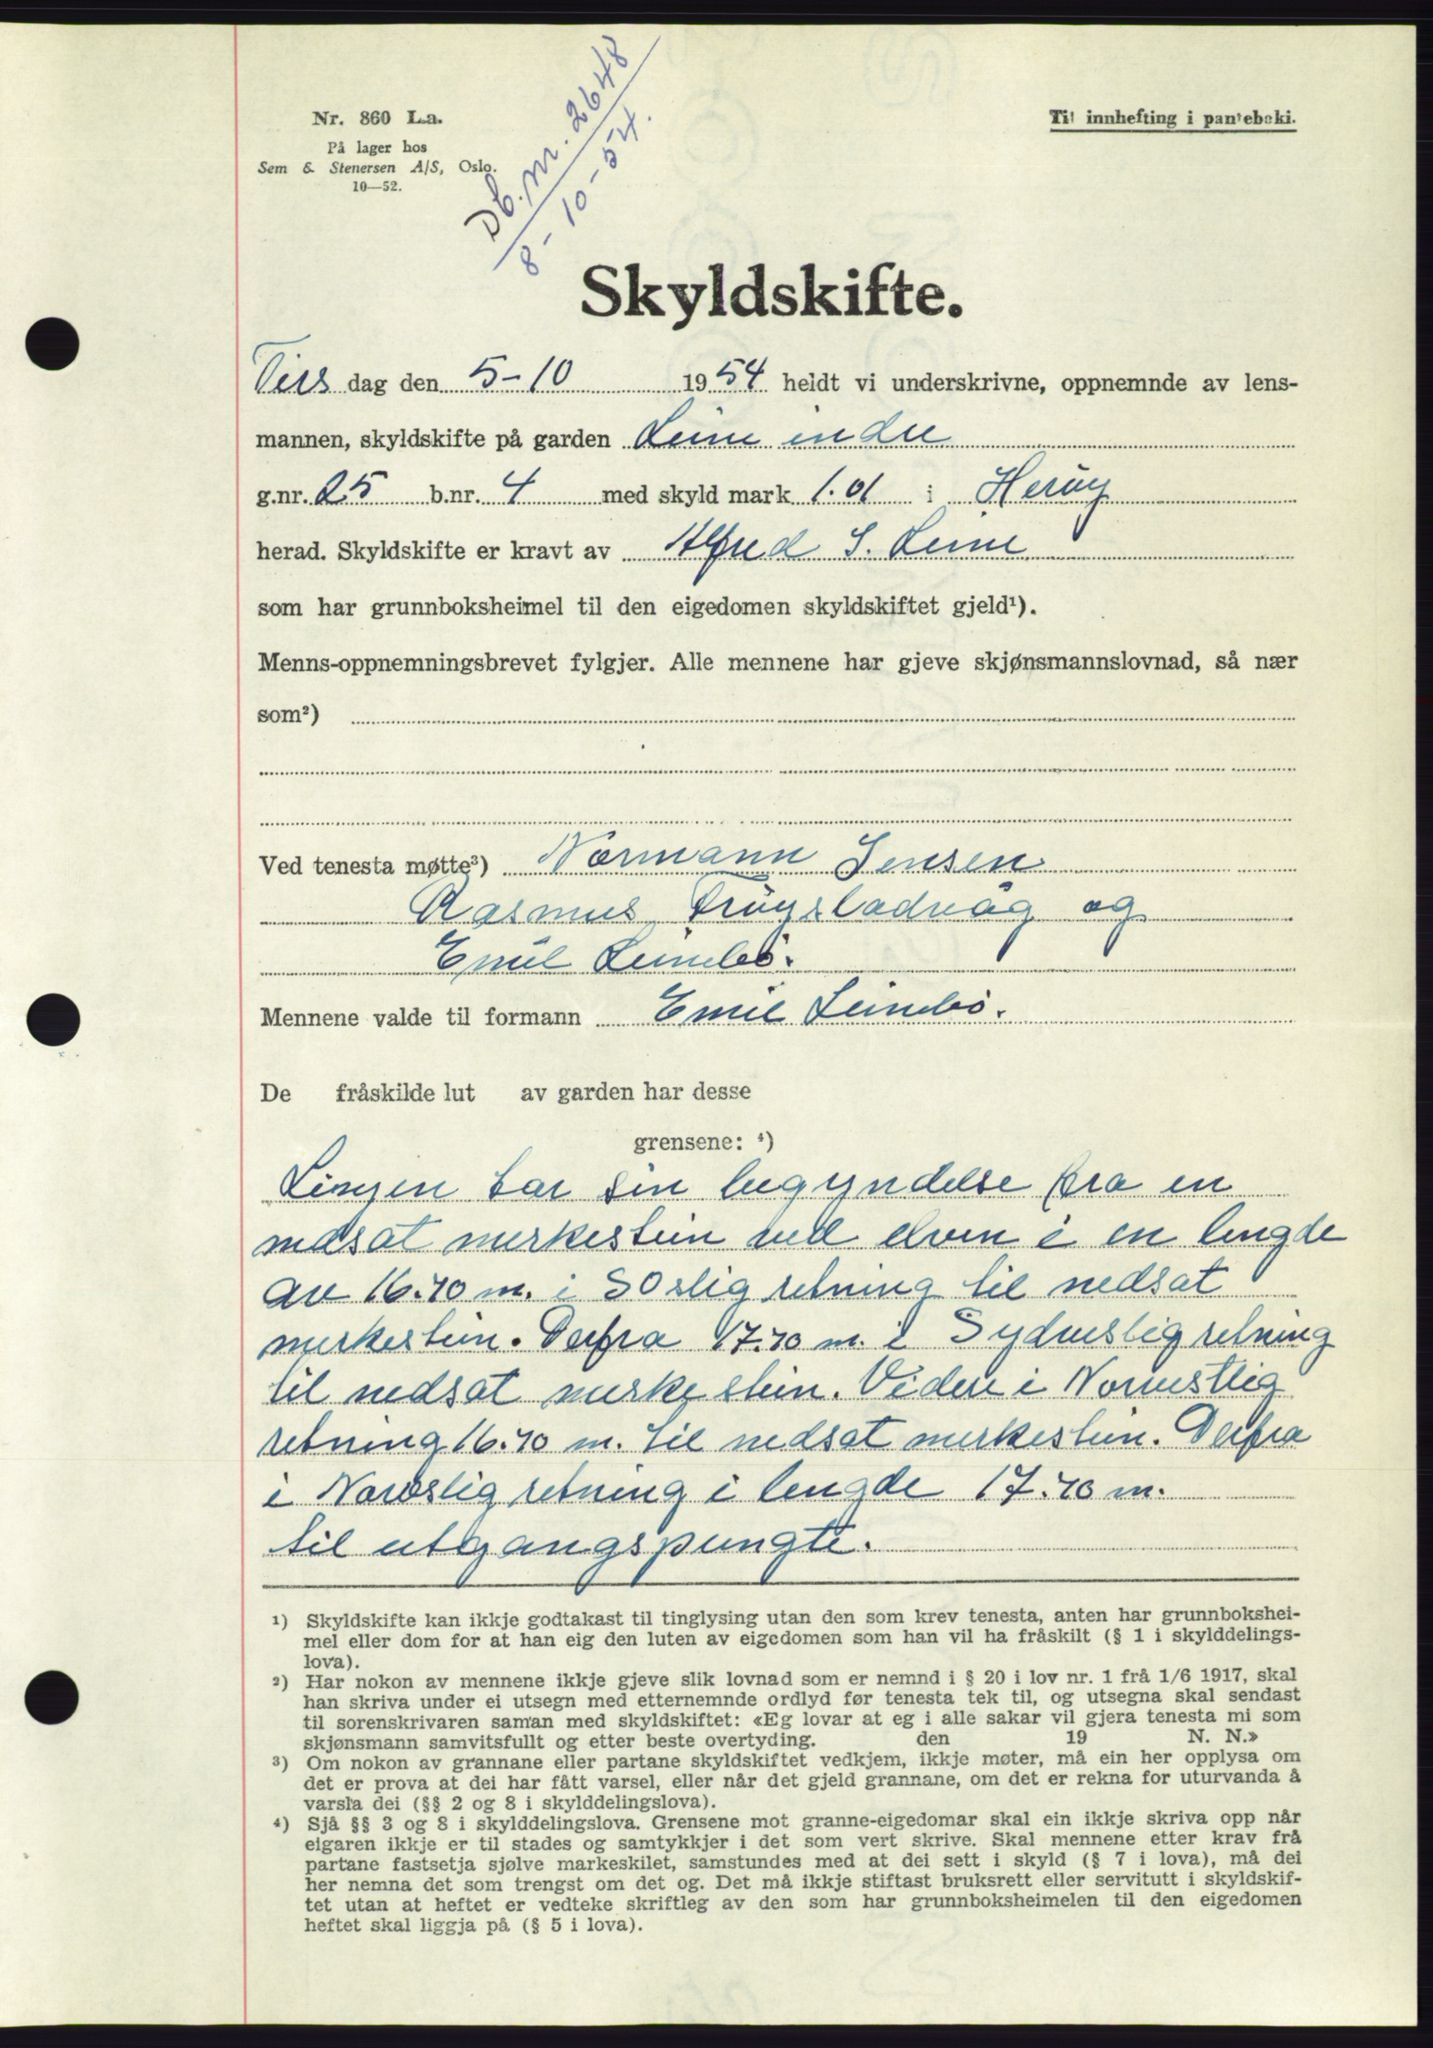 Nr. 860 L.a.
På lager hos
Sem & Stenersen A/S, Oslo.
10—52.
Db. nr. 2648
8-10-54.
Til innhefting i panteboki.
Skyldskifte.
Tirs dag den 5-10 1954 heldt vi underskrivne, oppnemnde av lens-
mannen, skyldskifte på garden Leine indre
g.nr. 25 b.nr. 4 med skyld mark 1.01 i Herøy
herad. Skyldskifte er kravt av Alfred S. Leine
som har grunnboksheimel til den eigedomen skyldskiftet gjeld¹).
Menns-oppnemningsbrevet fylgjer. Alle mennene har gjeve skjønsmannslovnad, så nær
som²)
Ved tenesta møtte³) Normann Jensen
Rasmus Frøystadvåg og
Emil Leinebø.
Mennene valde til formann Emil Leinebø.
De fråskilde lut av garden har desse
grensene: ⁴)
Linjen tar sin begyndelse fra en
nedsat merkestein ved elven i en lengde
av 16.70 m. i SOslig retning til nedsat
merkestein. Derfra 17.70 m. i Sydvestlig retning
til nedsat merkestein. Videre i Norvestlig
retning 16.70 m. til nedsat merkestein. Derfra
i Noroslig retning i lengde 17.70 m.
til utgangspungte.
¹) Skyldskifte kan ikkje godtakast til tinglysing utan den som krev tenesta, anten har grunnbokshei-
mel eller dom for at han eig den luten av eigedomen som han vil ha fråskilt (§ 1 i skylddelings-
lova).
²) Har nokon av mennene ikkje gjeve slik lovnad som er nemnd i § 20 i lov nr. 1 frå 1/6 1917, skal
han skriva under ei utsegn med etternemnde ordlyd før tenesta tek til, og utsegna skal sendast
til sorenskrivaren saman med skyldskiftet: «Eg lovar at eg i alle sakar vil gjera tenesta mi som
skjønsmann samvitsfullt og etter beste overtyding. den 19 N. N.»
³) Om nokon av grannane eller partane skyldskiftet vedkjem, ikkje møter, må ein her opplysa om
det er prova at dei har fått varsel, eller når det gjeld grannane, om det er rekna for uturvanda å
varsla dei (§§ 2 og 8 i skylddelingslova).
⁴) Sjå §§ 3 og 8 i skylddelingslova. Grensene mot granne-eigedomar skal ein ikkje skriva opp når
eigaren ikkje er til stades og samtykkjer i det som vert skrive. Skal mennene etter krav frå
partane fastsetja sjølve markeskilet, samstundes med at dei sett i skyld (§ 7 i lova), må dei
her nemna det som trengst om det og. Det må ikkje stiftast bruksrett eller servitutt i skyldskif-
tet utan at heftet er vedteke skriftleg av den som har grunnboksheimelen til den eigedomen
heftet skal liggja på (§ 5 i lova).